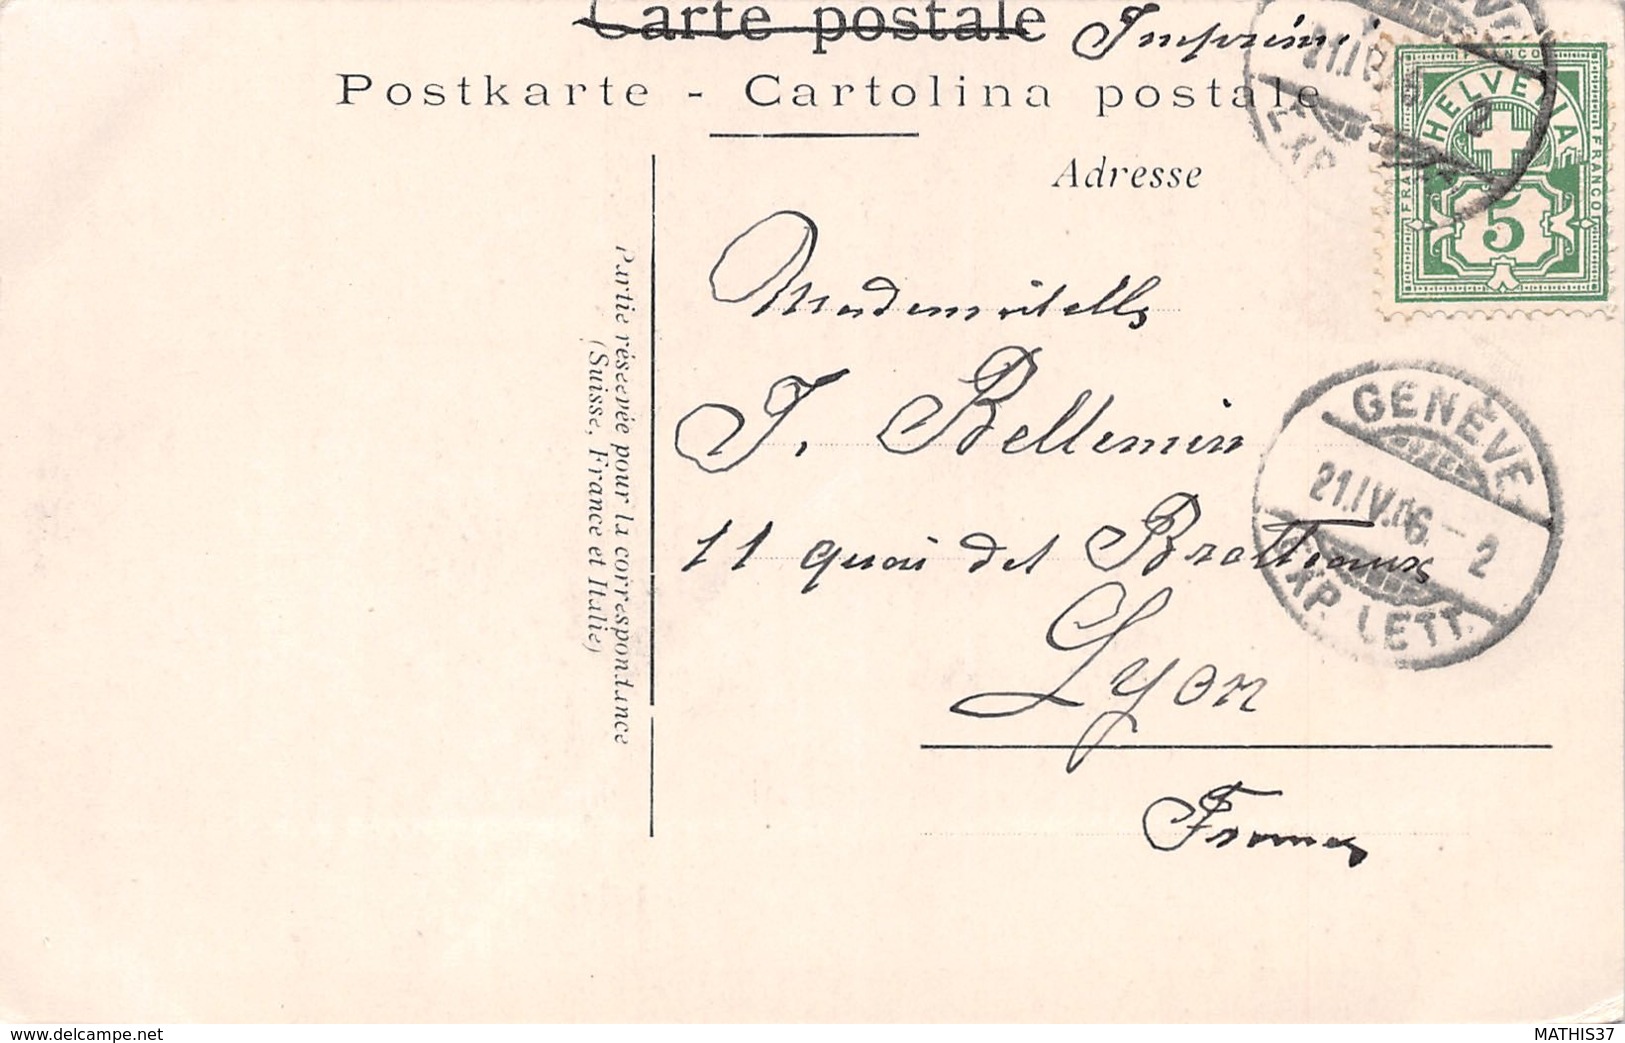 Carte postale Imprimé
Postkarte - Cartolina postale
Adresse
HELVETIA
FRANCO FRANCO FRANCO
5
Mademoiselle
J. Bellemin
11 quai des Brotteaux
Lyon
France
Partie réservée pour la correspondance
(Suisse, France et Italie)
GENÈVE
21.IV.06.-2
EXP. LETT.
www.delcampe.net
MATHIS37